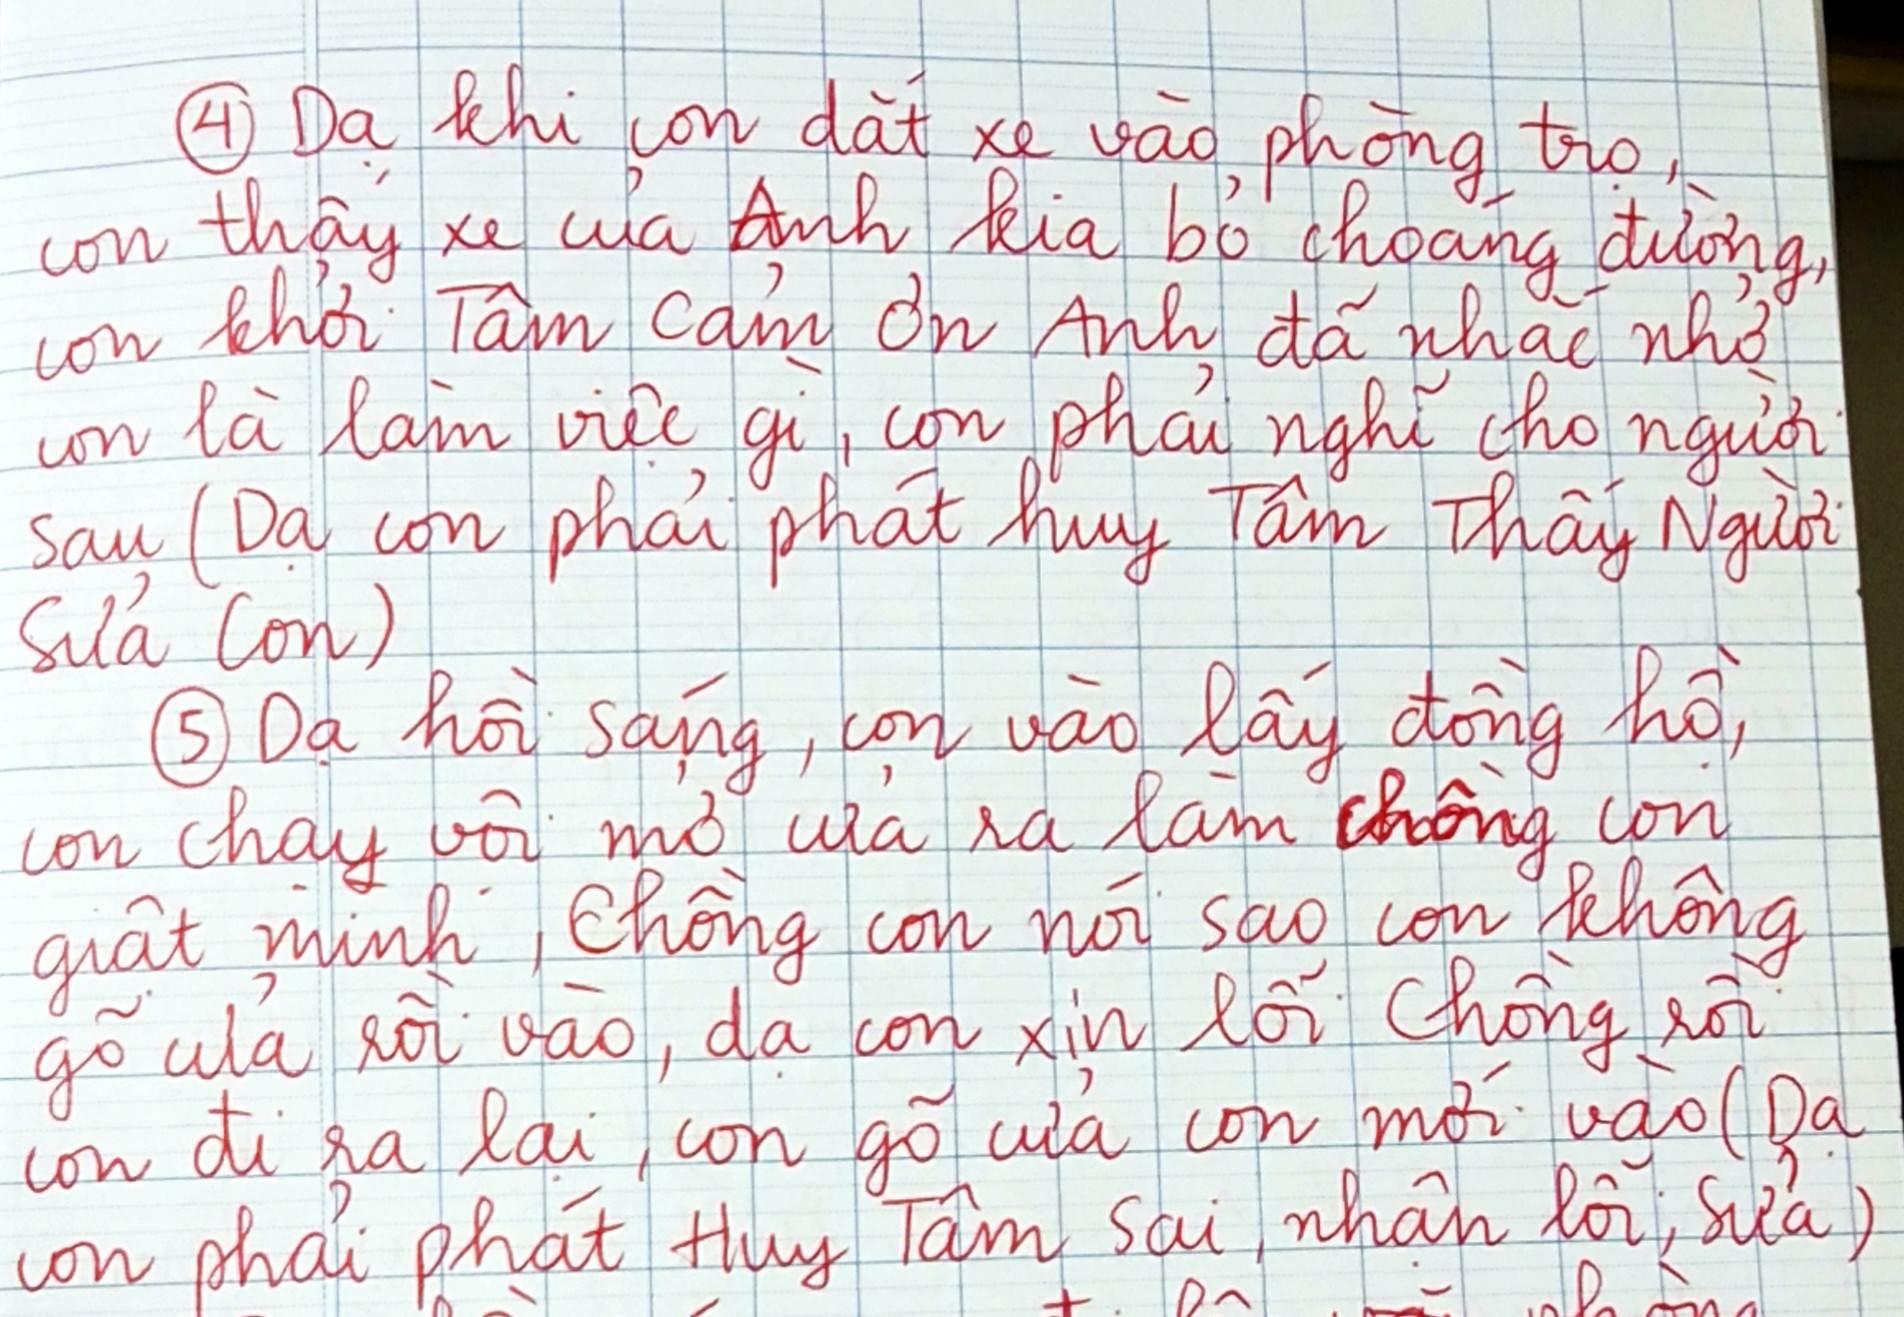 ④ Dạ khi con dắt xe vào phòng trọ,
con thấy xe của Anh kia bỏ choáng đường,
con khởi Tâm Cảm ơn Anh đã nhắc nhở
con là làm việc gì, con phải nghĩ cho người
sau (Dạ con phải phát huy Tâm Thấy Người
Sửa Con)
⑤ Dạ hồi sáng, con vào lấy đồng hồ,
con chạy vội mở cửa ra làm chồng con
giật mình, Chồng con nói sao con không
gõ cửa rồi vào, dạ con xin lỗi Chồng rồi
con đi ra lại, con gõ cửa con mới vào (Dạ
con phải phát Huy Tâm Sai, nhận lỗi, Sửa)